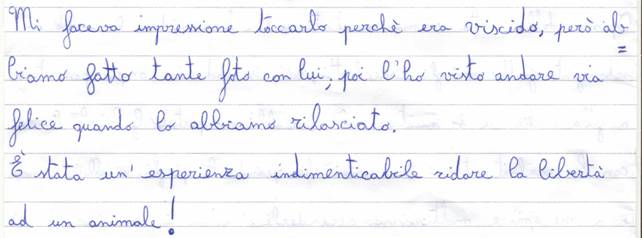 Mi faceva impressione toccarlo perchè era viscido, però ab=
biamo fatto tante foto con lui; poi l'ho visto andare via
felice quando lo abbiamo rilasciato.
È stata un' esperienza indimenticabile ridare la libertà
ad un animale!